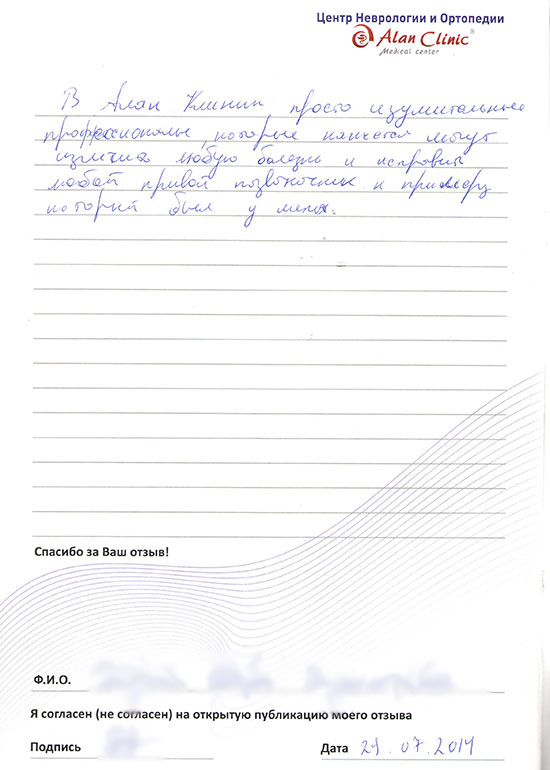 Центр Неврологии и Ортопедии
Alan Clinic®
Medical center
В Алан Клиник просто изумительные
профессионалы, которые кажется могут
излечить любую болезнь и исправить
любой кривой позвоночник к примеру
который был у меня.
Спасибо за Ваш отзыв!
Ф.И.О.
Я согласен (не согласен) на открытую публикацию моего отзыва
Подпись
Дата 29.07.2014